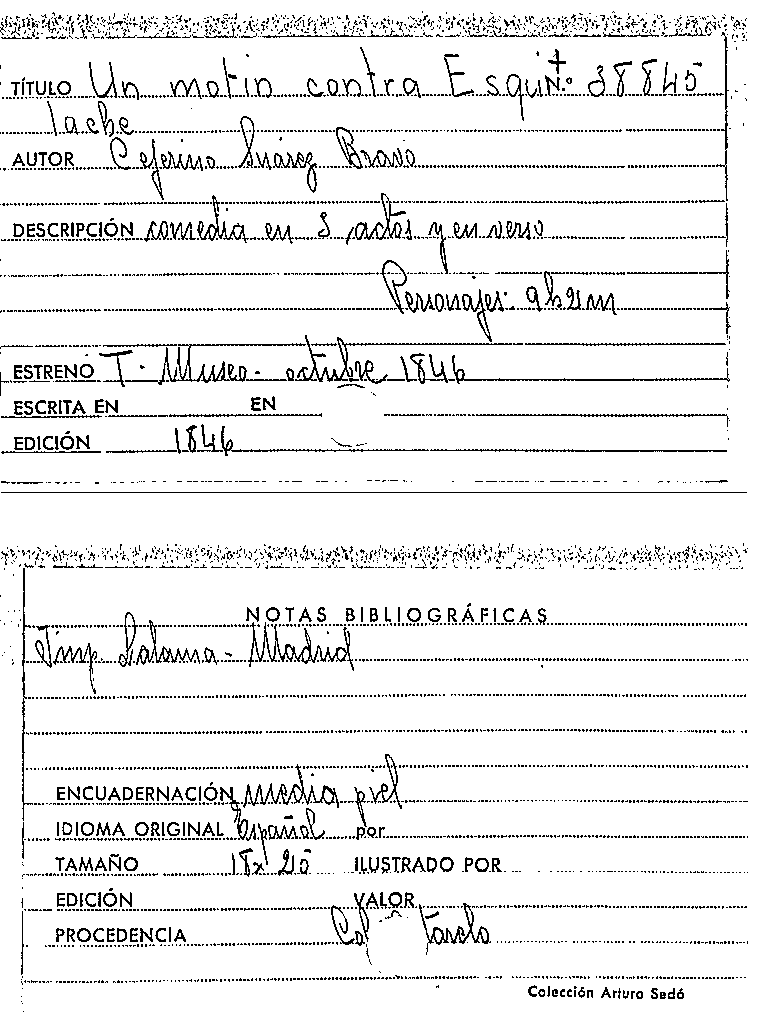 TÍTULO Un motin contra Esqui N.º 38845
lache
AUTOR Ceferino Suárez Bravo
DESCRIPCIÓN comedia en 3 actos y en verso
Personajes: 9h2m
ESTRENO T. Museo - octubre 1846
ESCRITA EN EN
EDICIÓN 1846
NOTAS BIBLIOGRÁFICAS
Imp Salama - Madrid
ENCUADERNACIÓN media piel
IDIOMA ORIGINAL Español por
TAMAÑO 15x20 ILUSTRADO POR
EDICIÓN VALOR
PROCEDENCIA Col
Colección Arturo Sedó